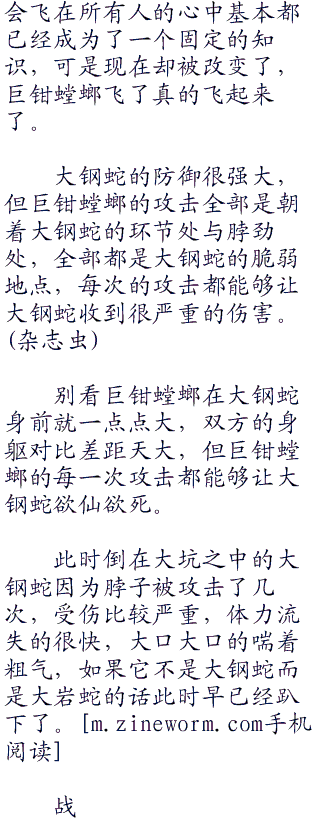 会飞在所有人的心中基本都
已经成为了一个固定的知
识，可是现在却被改变了，
巨钳螳螂飞了真的飞起来
了。
大钢蛇的防御很强大，
但巨钳螳螂的攻击全部是朝
着大钢蛇的环节处与脖劲
处，全部都是大钢蛇的脆弱
地点，每次的攻击都能够让
大钢蛇收到很严重的伤害。
(杂志虫)
别看巨钳螳螂在大钢蛇
身前就一点点大，双方的身
躯对比差距天大，但巨钳螳
螂的每一次攻击都能够让大
钢蛇欲仙欲死。
此时倒在大坑之中的大
钢蛇因为脖子被攻击了几
次，受伤比较严重，体力流
失的很快，大口大口的喘着
粗气，如果它不是大钢蛇而
是大岩蛇的话此时早已经趴
下了。[m.zineworm.com手机
阅读]
战